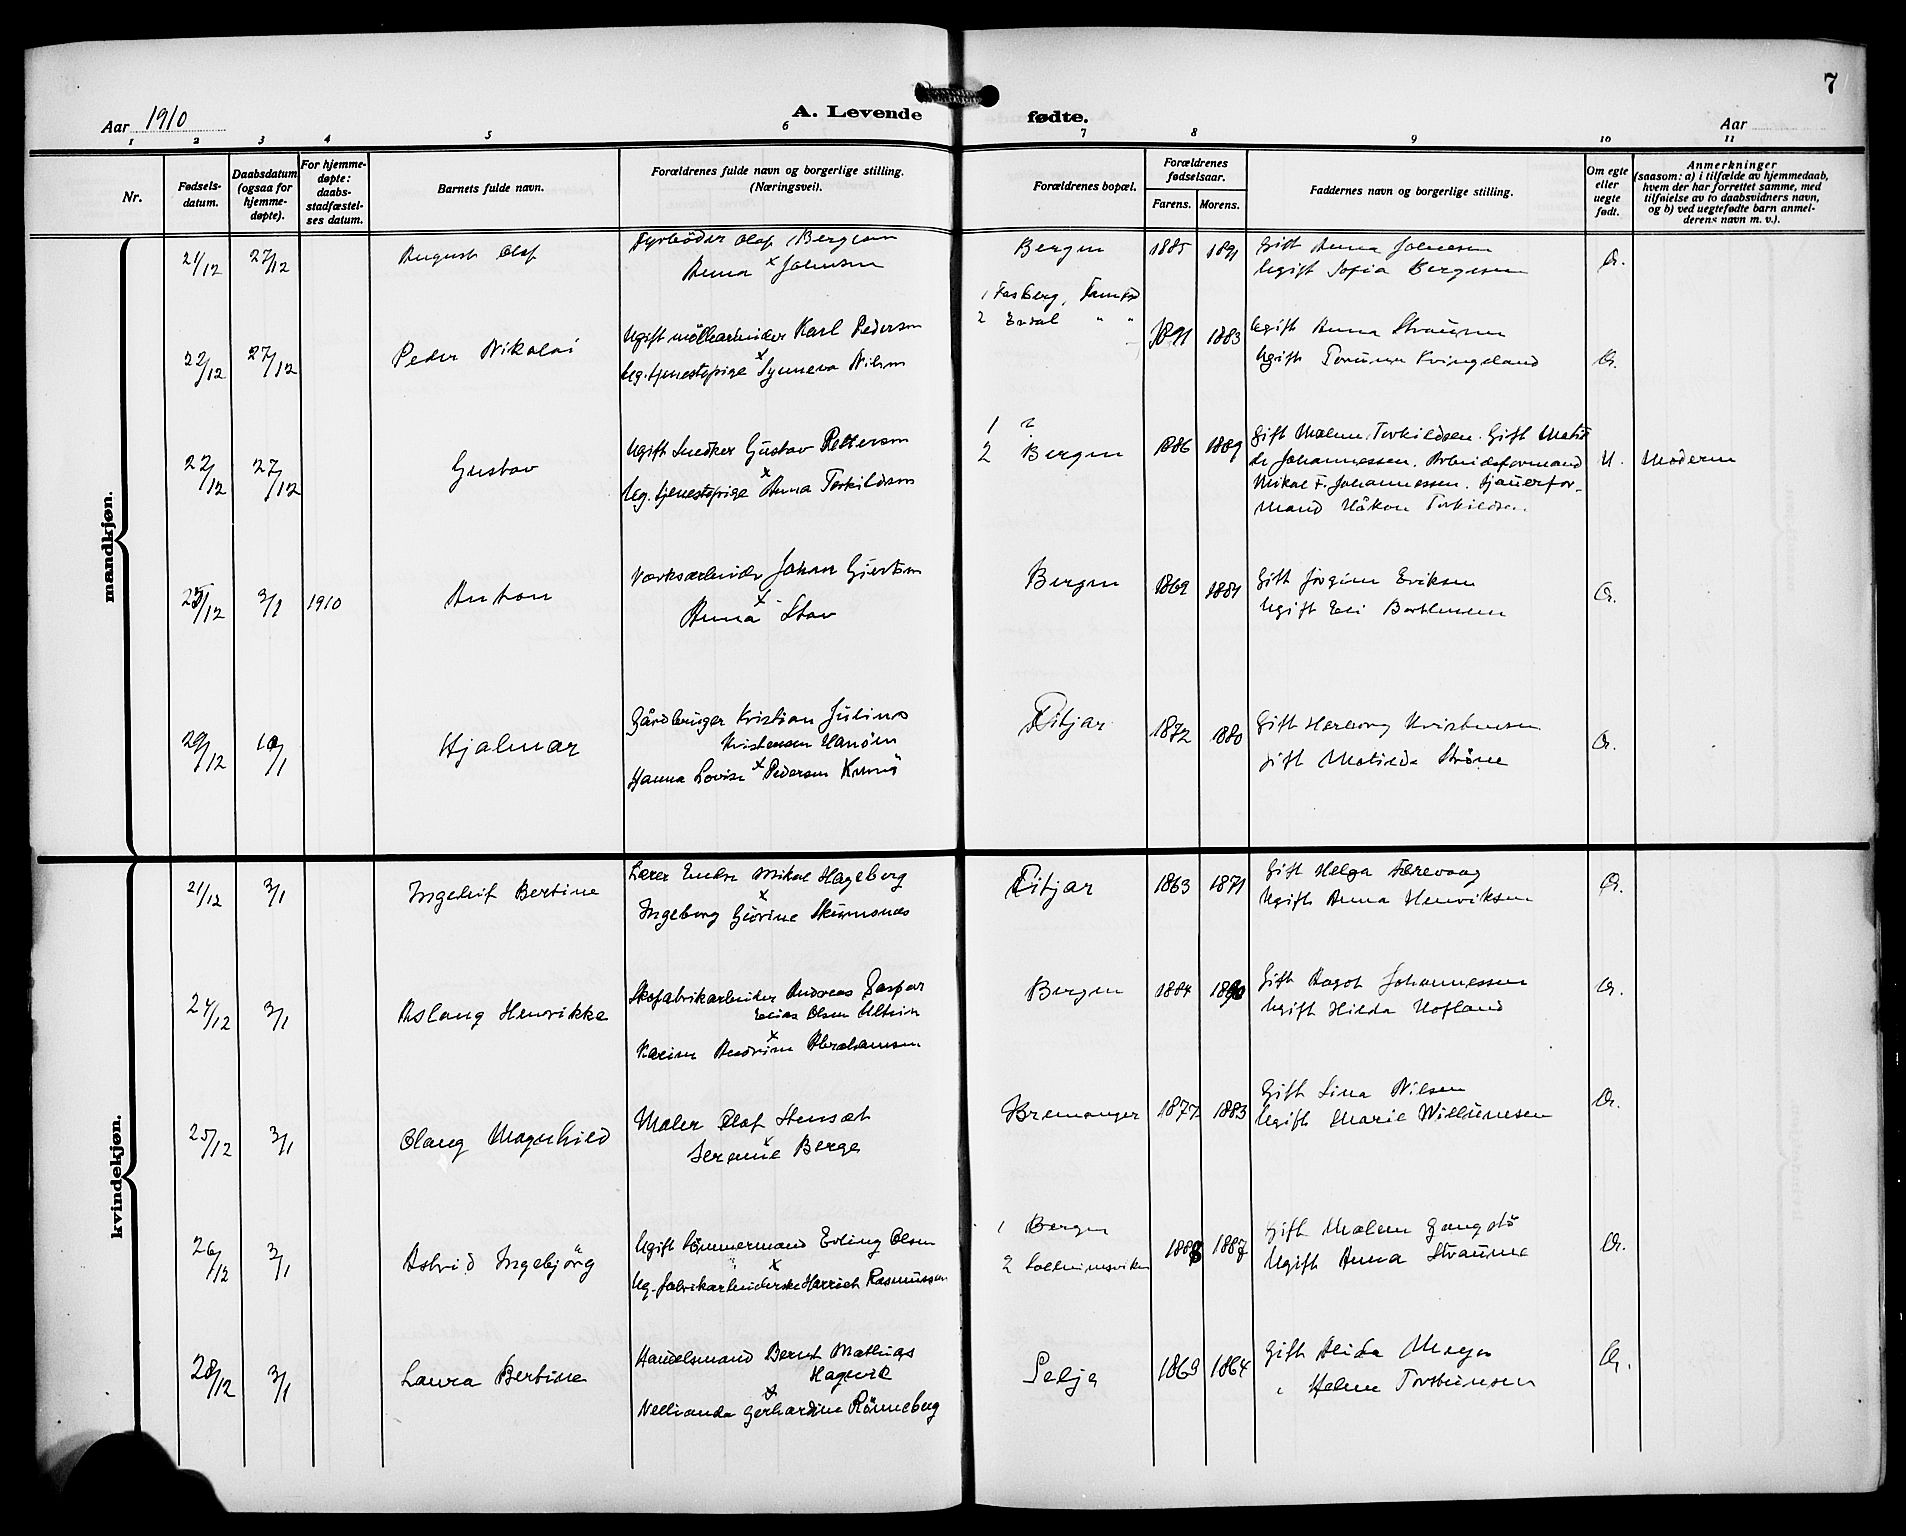 7
Aar 1910
A. Levende fødte.
Aar
1 2 3 4 5 6 7 8 9 10 11
Nr.
Fødsels-
datum.
Daabsdatum
(ogsaa for
hjemme-
døpte).
For hjemme-
døpte:
daabs-
stadfæstel-
ses datum.
Barnets fulde navn.
Forældrenes fulde navn og borgerlige stilling.
(Næringsvei).
Forældrenes bopæl.
Forældrenes
fødselsaar.
Farens. Morens.
Faddernes navn og borgerlige stilling.
Om egte
eller
uegte
født.
Anmerkninger
(saasom: a) i tilfælde av hjemmedaab,
hvem der har forrettet samme, med
tilføielse av to daabsvidners navn,
og b) ved uegtefødte barn anmel-
derens navn m. v.).
mandkjøn.
21/12 27/12 August Olaf
Fyrbøder Olaf Bergesen
Anna x Johnsen
Bergen 1885 1891
Gift Anna Johnesen
Ugift Sofia Bergesen
22/12 27/12 Peder Nikolai
Ugift møllearbeider Karl Pedersen
Ug. tjenestepige x Synneva Nilsen
1
2 " "
1891 1883
Ugift Anna Straume
Ugift Torunna Kvingeland
22/12 27/12 Gustav
Ugift Snedker Gustav Pettersen
Ug. tjenestepige x Anna Torkildsen
1 ?
2 Bergen 1886 1889
Gift Malene Torkildsen. Gift Matil
de Johannessen. Arbeidsformand
Mikal F. Johannessen. Sjauerfor-
mand Håkon Torkildsen.
U. Moderen
25/12 3/1 1910 Anton
Værksarbeider Johan Giertsen
Anna x Stav
Bergen 1869 1881
Gift Jørgine Eriksen
Ugift Eli Berthensen
29/12 10/1 Hjalmar
Gårdbruger Kristian Julius
Kristensen
Hanna Lovise x Pedersen
Fitjar 1872 1880
Gift Kristensen
Gift Matilda
kvindekjøn.
21/12 3/1 Bertine
Lærer Endre Mikal Hageberg
x
Ingeborg Giørine Skumsnæs
Fitjar 1863 1871
Gift Helga Færevaag
Ugift Anna Henriksen
24/12 3/1 Aslaug Henrikke
Skofabrikarbeider Andreas Gaspar
Elias Olsen
Karine Andrine x Abrahamsen
Bergen 1884 1890
Gift Dagot Johannessen
Ugift Hilda Hofland
25/12 3/1 Olaug Magnhild
Maler Olaf Stensæt
x Berge
Bremanger 1877 1883
Gift Lina Nilsen
Ugift Marie Willumsen
26/12 3/1 Astrid Ingebjörg
Ugift tömmermand Erling Olsen
Ug. fabrikarbeiderske x Harriet Rasmussen
1 Bergen
2
1888 1887
Gift Malene Gangstö
Ugift Anna Straume
28/12 3/1 Laura Bertine
Handelsmand Bernt Mathias
Hagevik
x
Gerhardine Rönneberg
Selje 1869 1864
Gift Alida Meyer
" Helene Torsteinsen